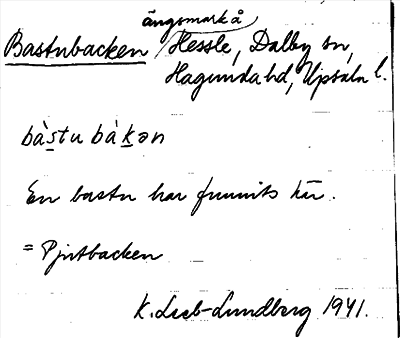 ängsmark å
Bastubacken Hessle, Dalby sn,
Hagunda hd, Upsala l.
bàstu bàkən
En bastu har funnits här.
= Pjutbacken
K. Lieb-Lundberg 1941.